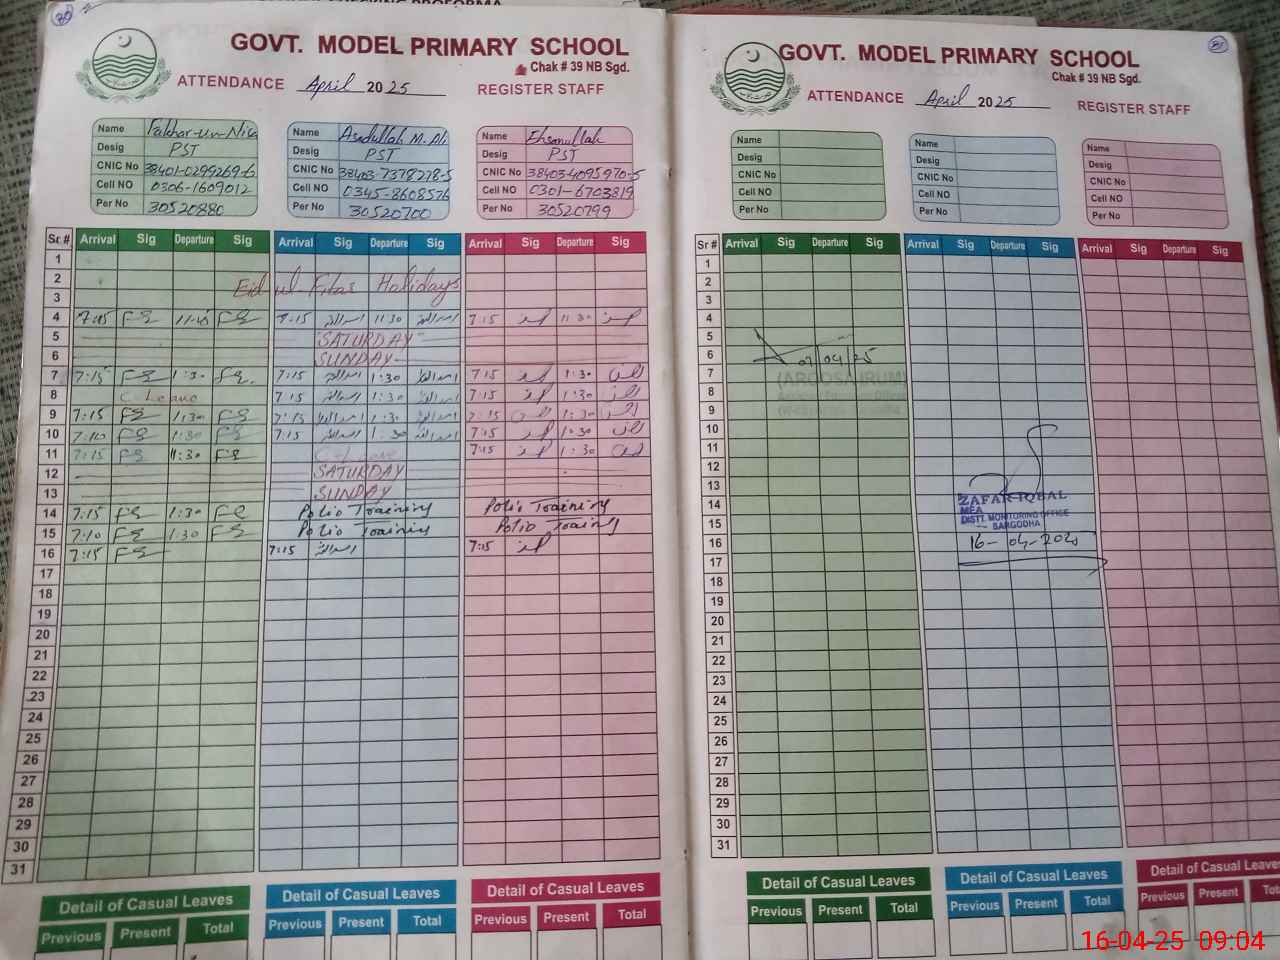 GOVT. MODEL PRIMARY SCHOOL
Chak # 39 NB Sgd.
ATTENDANCE April 2025 REGISTER STAFF
Name Fakhar-un-Nisa
Desig PST
CNIC No 38401-0299269-6
Cell NO 0306-1609012
Per No 30520880
Name Asadullah M. Ali
Desig PST
CNIC No 38403-7378278-5
Cell NO 0345-8608576
Per No 30520700
Name Ehsanullah
Desig PST
CNIC No 38403-4095970-5
Cell NO 0301-6703819
Per No 30520799
Sr.# Arrival Sig Departure Sig Arrival Sig Departure Sig Arrival Sig Departure Sig
1
2 Eid ul Fitar Holidays
3
4 7:15 11:30 7:15 11:30
5 "SATURDAY"
6 SUNDAY
7 7:15 1:30 7:15 1:30 7:15 1:30
8 C. Leave 7:15 1:30 7:15 1:30
9 7:15 1:30 7:15 1:30 7:15 1:30
10 7:10 1:30 7:15 1:30 7:15 1:30
11 7:15 11:30 C-Leave 7:15 1:30
12 SATURDAY
13 SUNDAY
14 7:15 1:30 Polio Training Polio Training
15 7:10 1:30 Polio Training Polio Training
16 7:15 7:15 7:15
17
18
19
20
21
22
23
24
25
26
27
28
29
30
31
Detail of Casual Leaves Detail of Casual Leaves Detail of Casual Leaves
Previous Present Total Previous Present Total Previous Present Total
GOVT. MODEL PRIMARY SCHOOL
Chak # 39 NB Sgd.
ATTENDANCE April 2025 REGISTER STAFF
Name
Desig
CNIC No
Cell NO
Per No
Name
Desig
CNIC No
Cell NO
Per No
Name
Desig
CNIC No
Cell NO
Per No
Sr # Arrival Sig Departure Sig Arrival Sig Departure Sig Arrival Sig Departure Sig
1
2
3
4
5
6 07/04/25
7 (AROOSA IRUM)
8
9
10
11
12
13
14 ZAFAR IQBAL
MEA
15 DISTT. MONITORING OFFICE
SARGODHA
16 16-04-2020
17
18
19
20
21
22
23
24
25
26
27
28
29
30
31
Detail of Casual Leaves Detail of Casual Leaves Detail of Casual Leaves
Previous Present Total Previous Present Total Previous Present Total
16-04-25 09:04